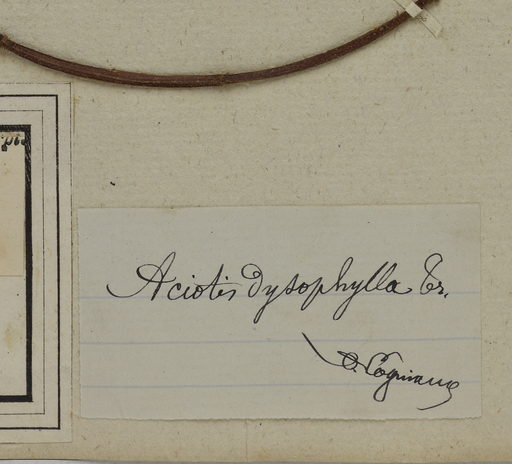 Aciotis dysophylla Tr.
A. Cogniaux